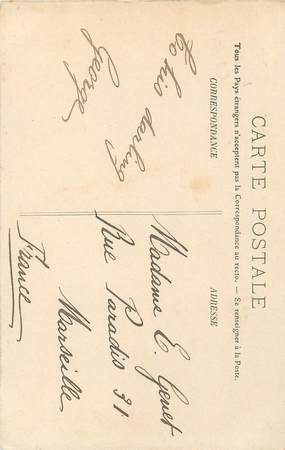 CARTE POSTALE
Tous les Pays étrangers n'acceptent pas la Correspondance au recto. — Se renseigner à la Poste.
CORRESPONDANCE
ADRESSE
To his darling
George
Madame E. Genet
Rue Paradis 31
Marseille
France